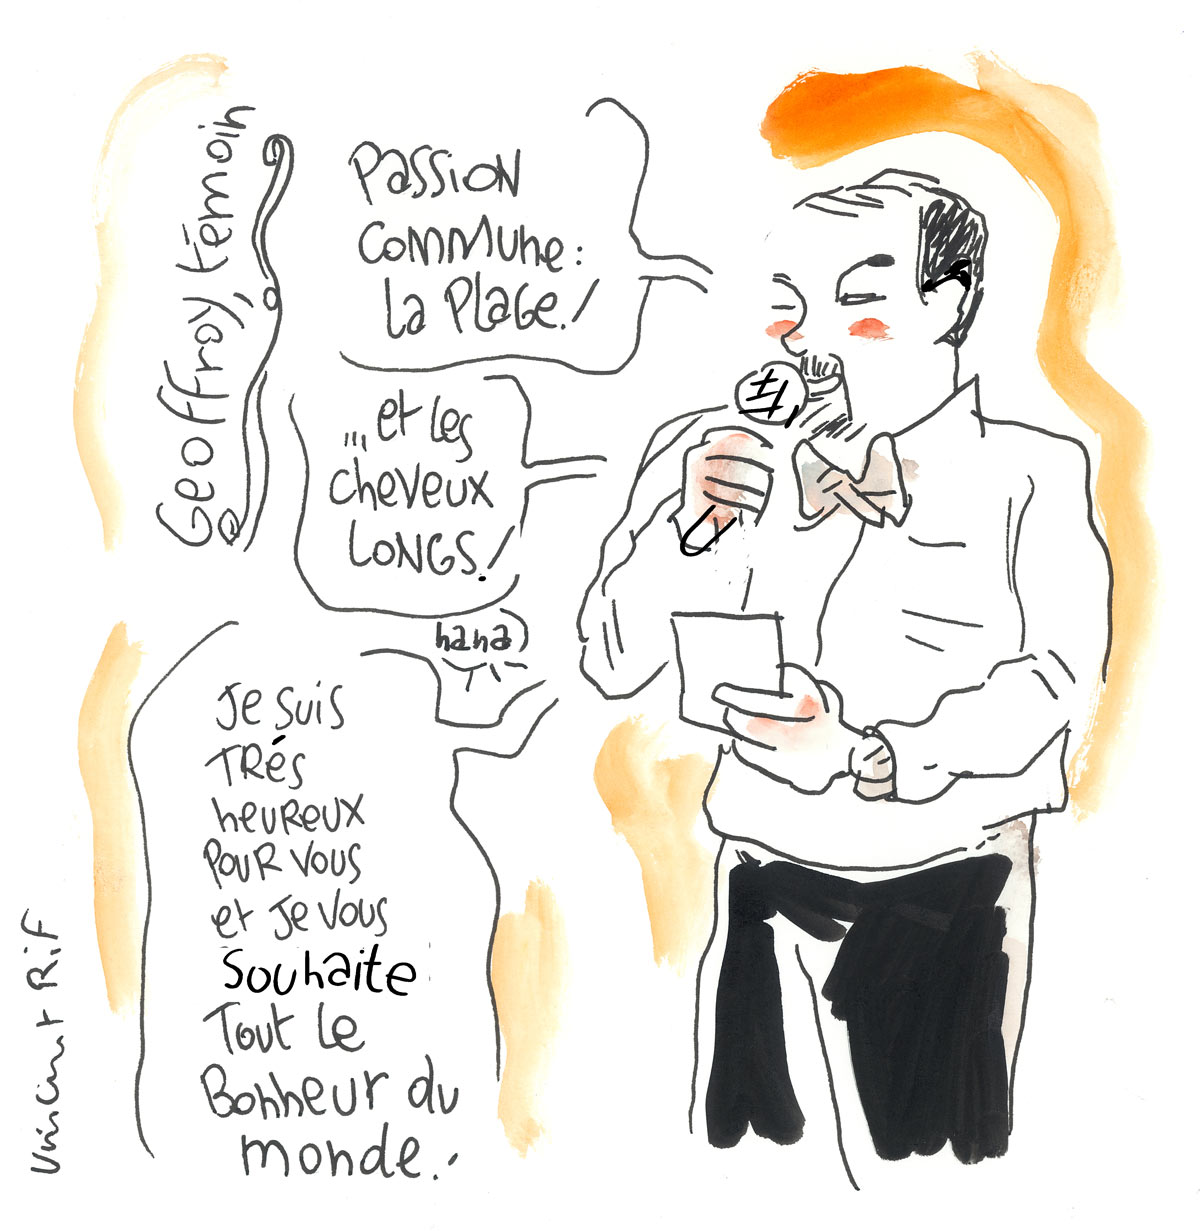 Geoffroy, témoin
Passion
commune :
la plage !
... et les
cheveux
longs !
haha)
Je suis
trés
heureux
pour vous
et je vous
souhaite
tout le
bonheur du
monde !
Vincent Rif